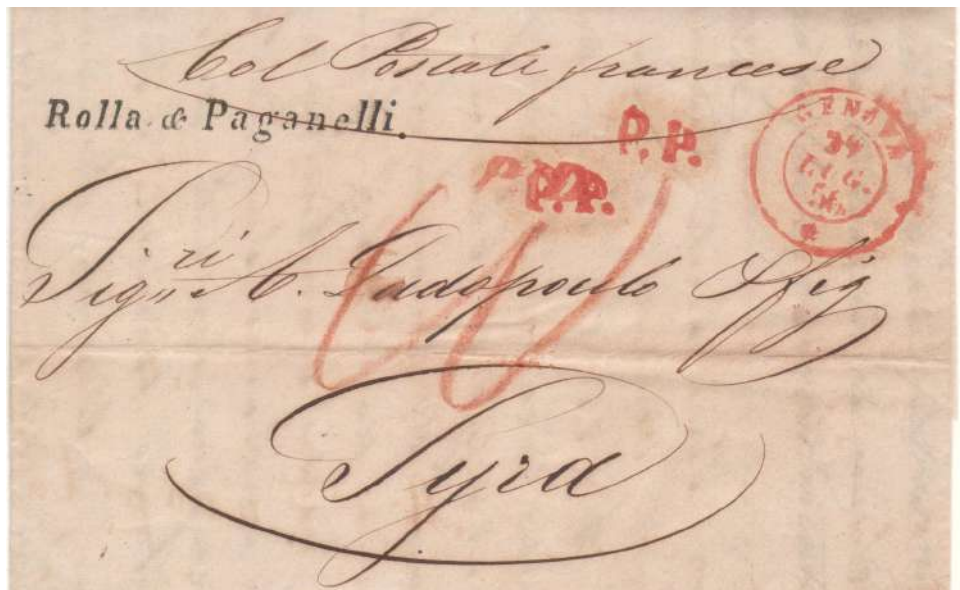 Col Postale francese
Rolla & Paganelli.
P. P.
P.P.
GENOVA
LUG.
56
Sigri A. Dadopoulo & fig
Syra